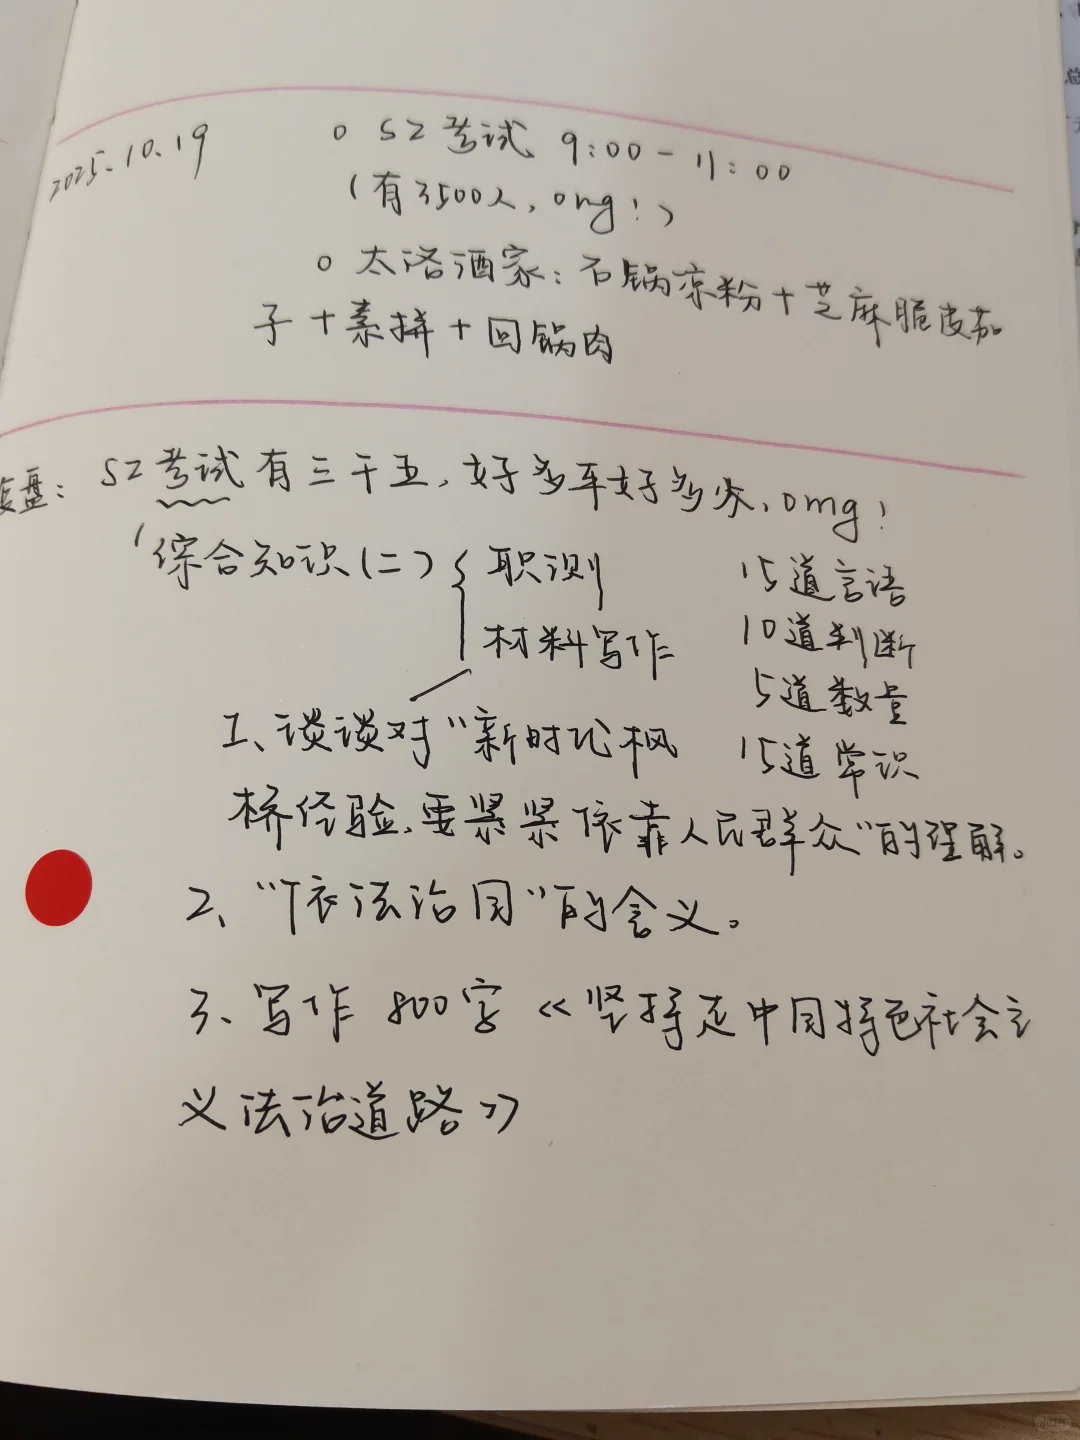 2025.10.19
○ SZ考试 9:00-11:00
(有3500人,omg!)
○ 太洛酒家:石锅凉粉+芝麻脆皮茄
子+素拼+回锅肉
复盘:SZ考试有三千五,好多车好多人,omg!
综合知识(二){职测
材料写作
15道言语
10道判断
5道数量
15道常识
1、谈谈对"新时代枫
桥经验,要紧紧依靠人民群众"的理解。
2、"依法治国"的含义。
3、写作 800字《坚持走中国特色社会主
义法治道路》